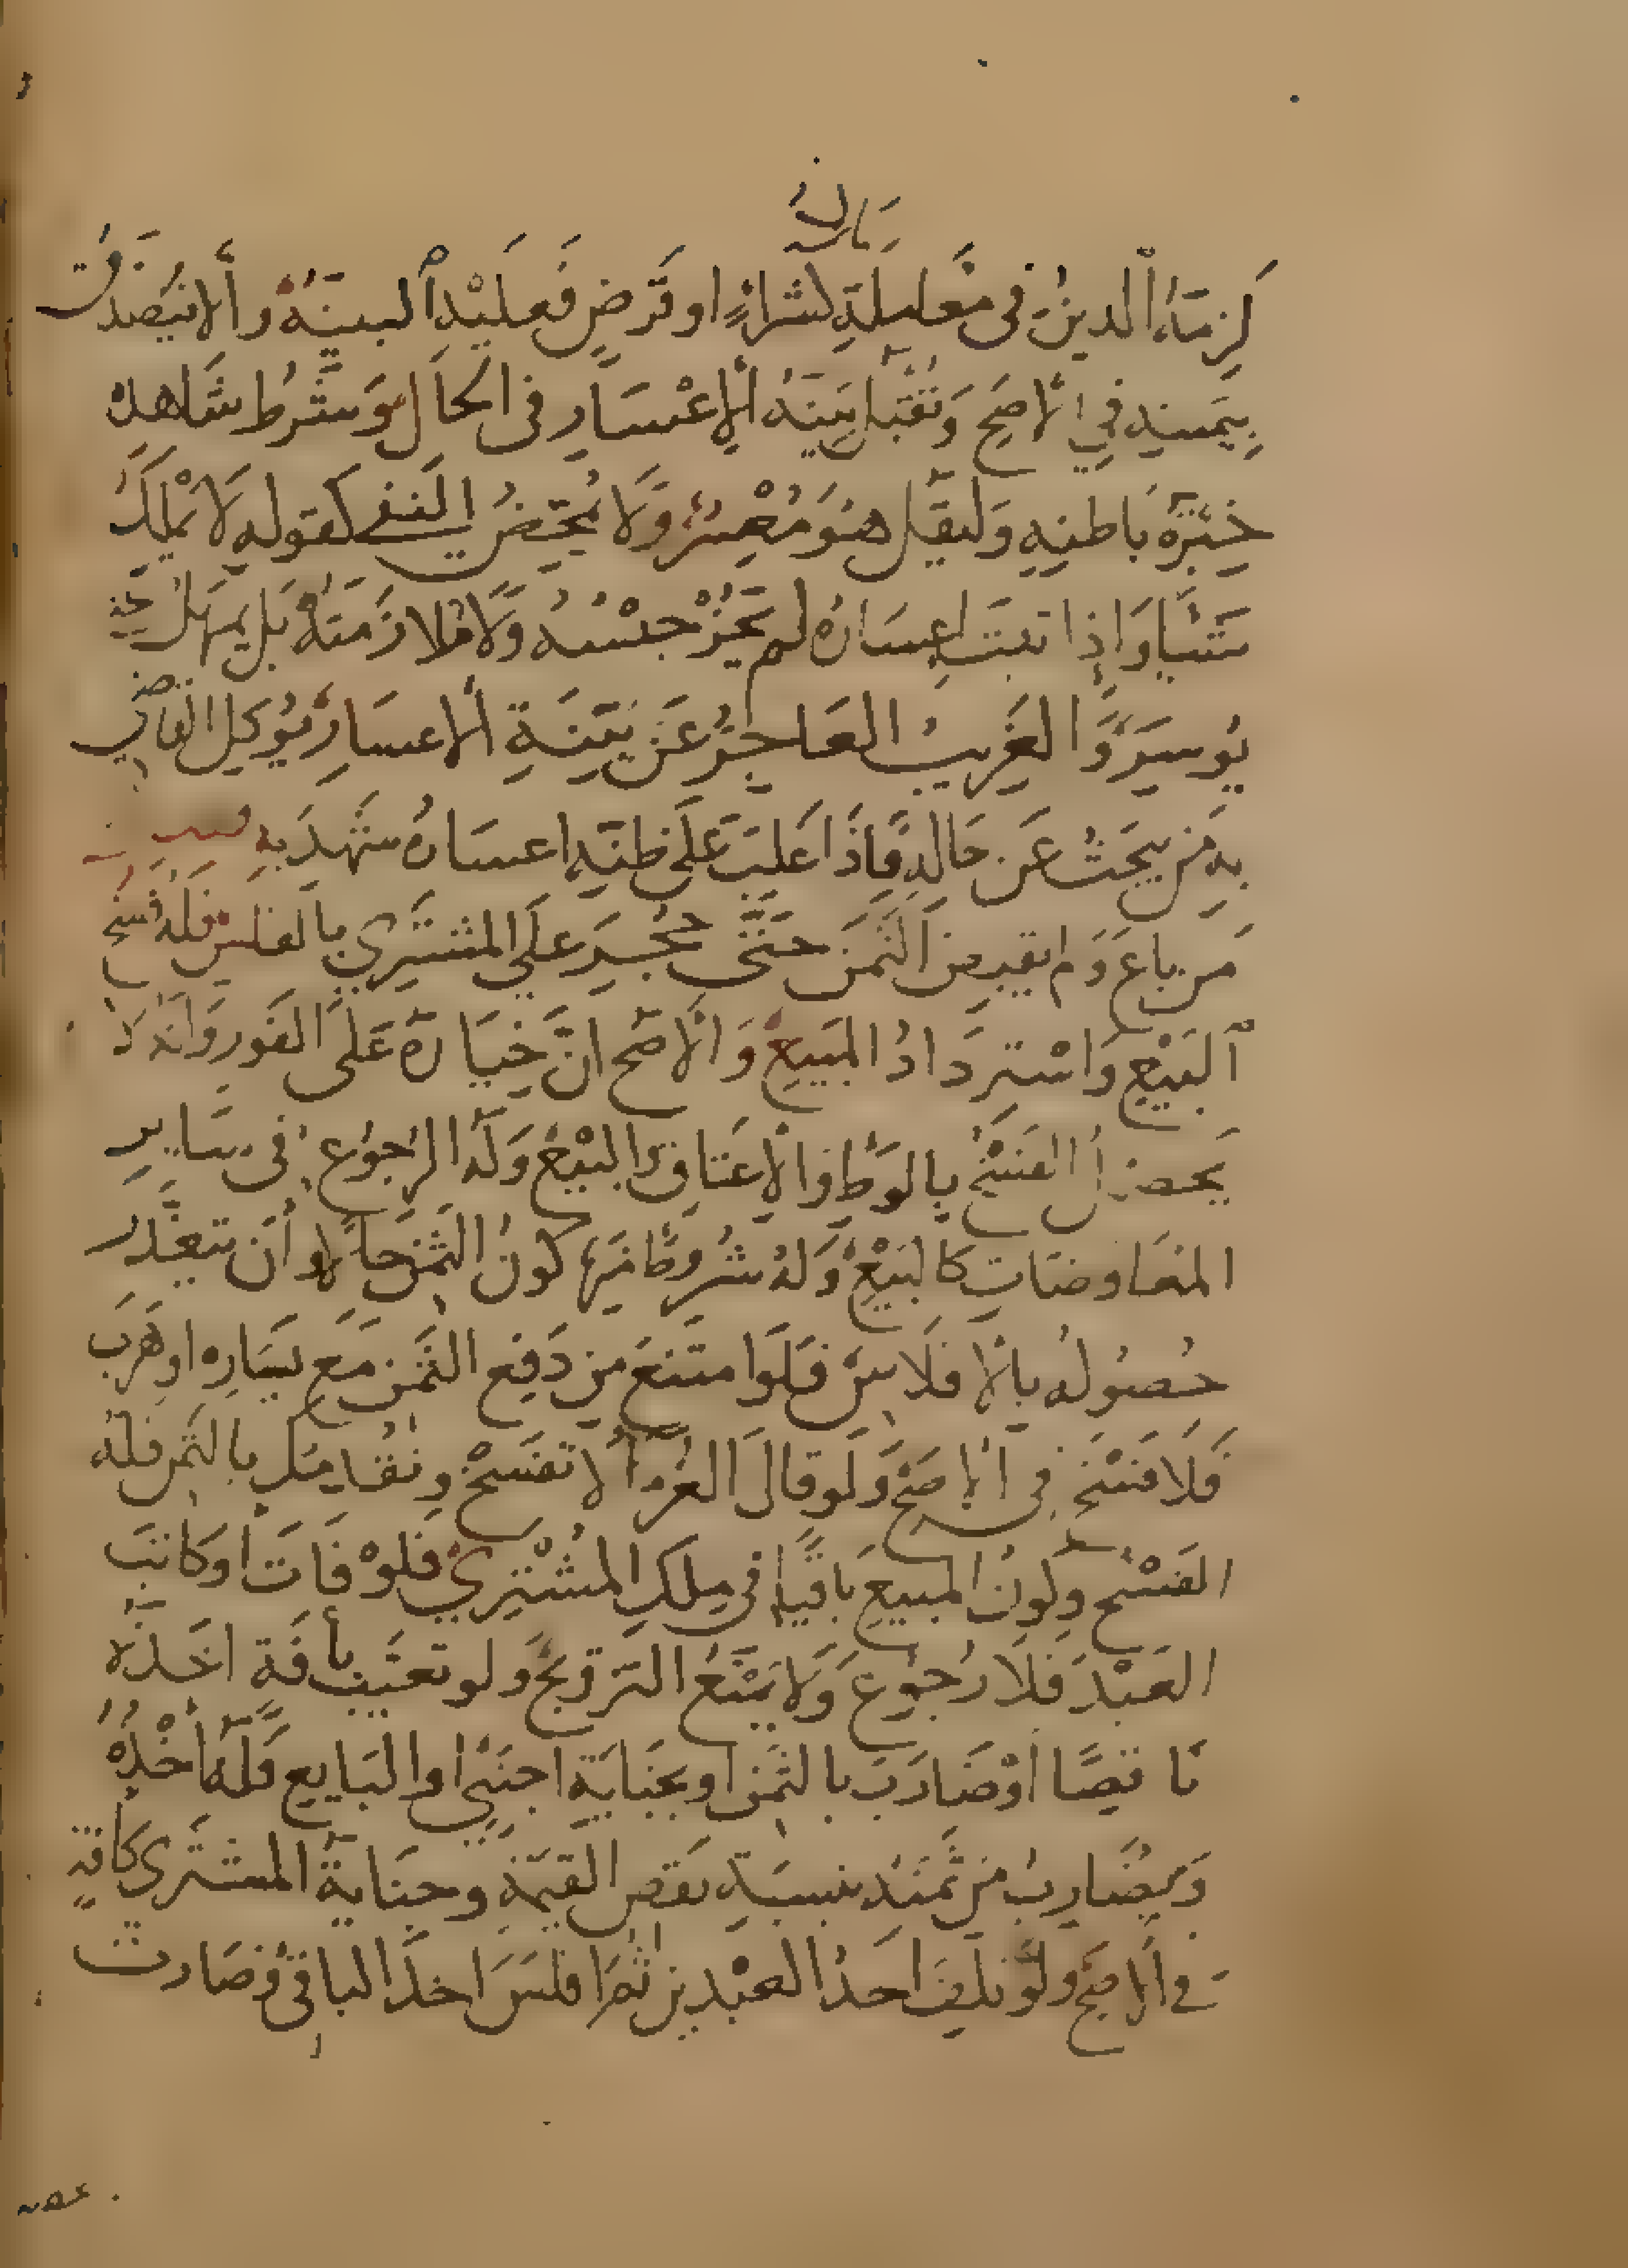 لزمه الدين في معاملة كشراء او قرض فعليه البينة والا فيصدق
بيمينه في الاصح وتقبل بينة الاعسار في الحال وشرط شاهده
خبرة باطنه وليقل هو معسر ولا يمحض النفي كقوله لا يملك
شيا واذا ثبت اعساره لم يجز حبسه ولا ملازمته بل يمهل حتى
يوسر والغريب العاجز عن بينة الاعسار يوكل القاضي
به من يبحث عن حاله فاذا غلب على ظنه اعساره شهد به
من باع ولم يقبض الثمن حتى حجر على المشتري بالفلس فله فسخ
البيع واسترداد المبيع والاصح ان خياره على الفور وانه لا
يحصل الفسخ بالوطء والاعتاق والبيع وله الرجوع في ساير
المعاوضات كالبيع وله شروط منها كون الثمن حالا وان يتعذر
حصوله بالافلاس فلو امتنع من دفع الثمن مع يساره او هرب
فلا فسخ في الاصح ولو قال الغرما لا تفسخ ونقدمك بالثمن فله
الفسخ وكون المبيع باقيا في ملك المشتري فلو فات او كاتب
العبد فلا رجوع ولا يمنع التزويج ولو تعيب بأفة اخذه
ناقصا او ضارب بالثمن او بجناية اجنبي او البايع فله أخذه
ويضارب من ثمنه بنسبة نقص القيمة وجناية المشتري كافة
في الاصح ولو تلف احد العبدين ثم افلس اخذ الباقي وضارب